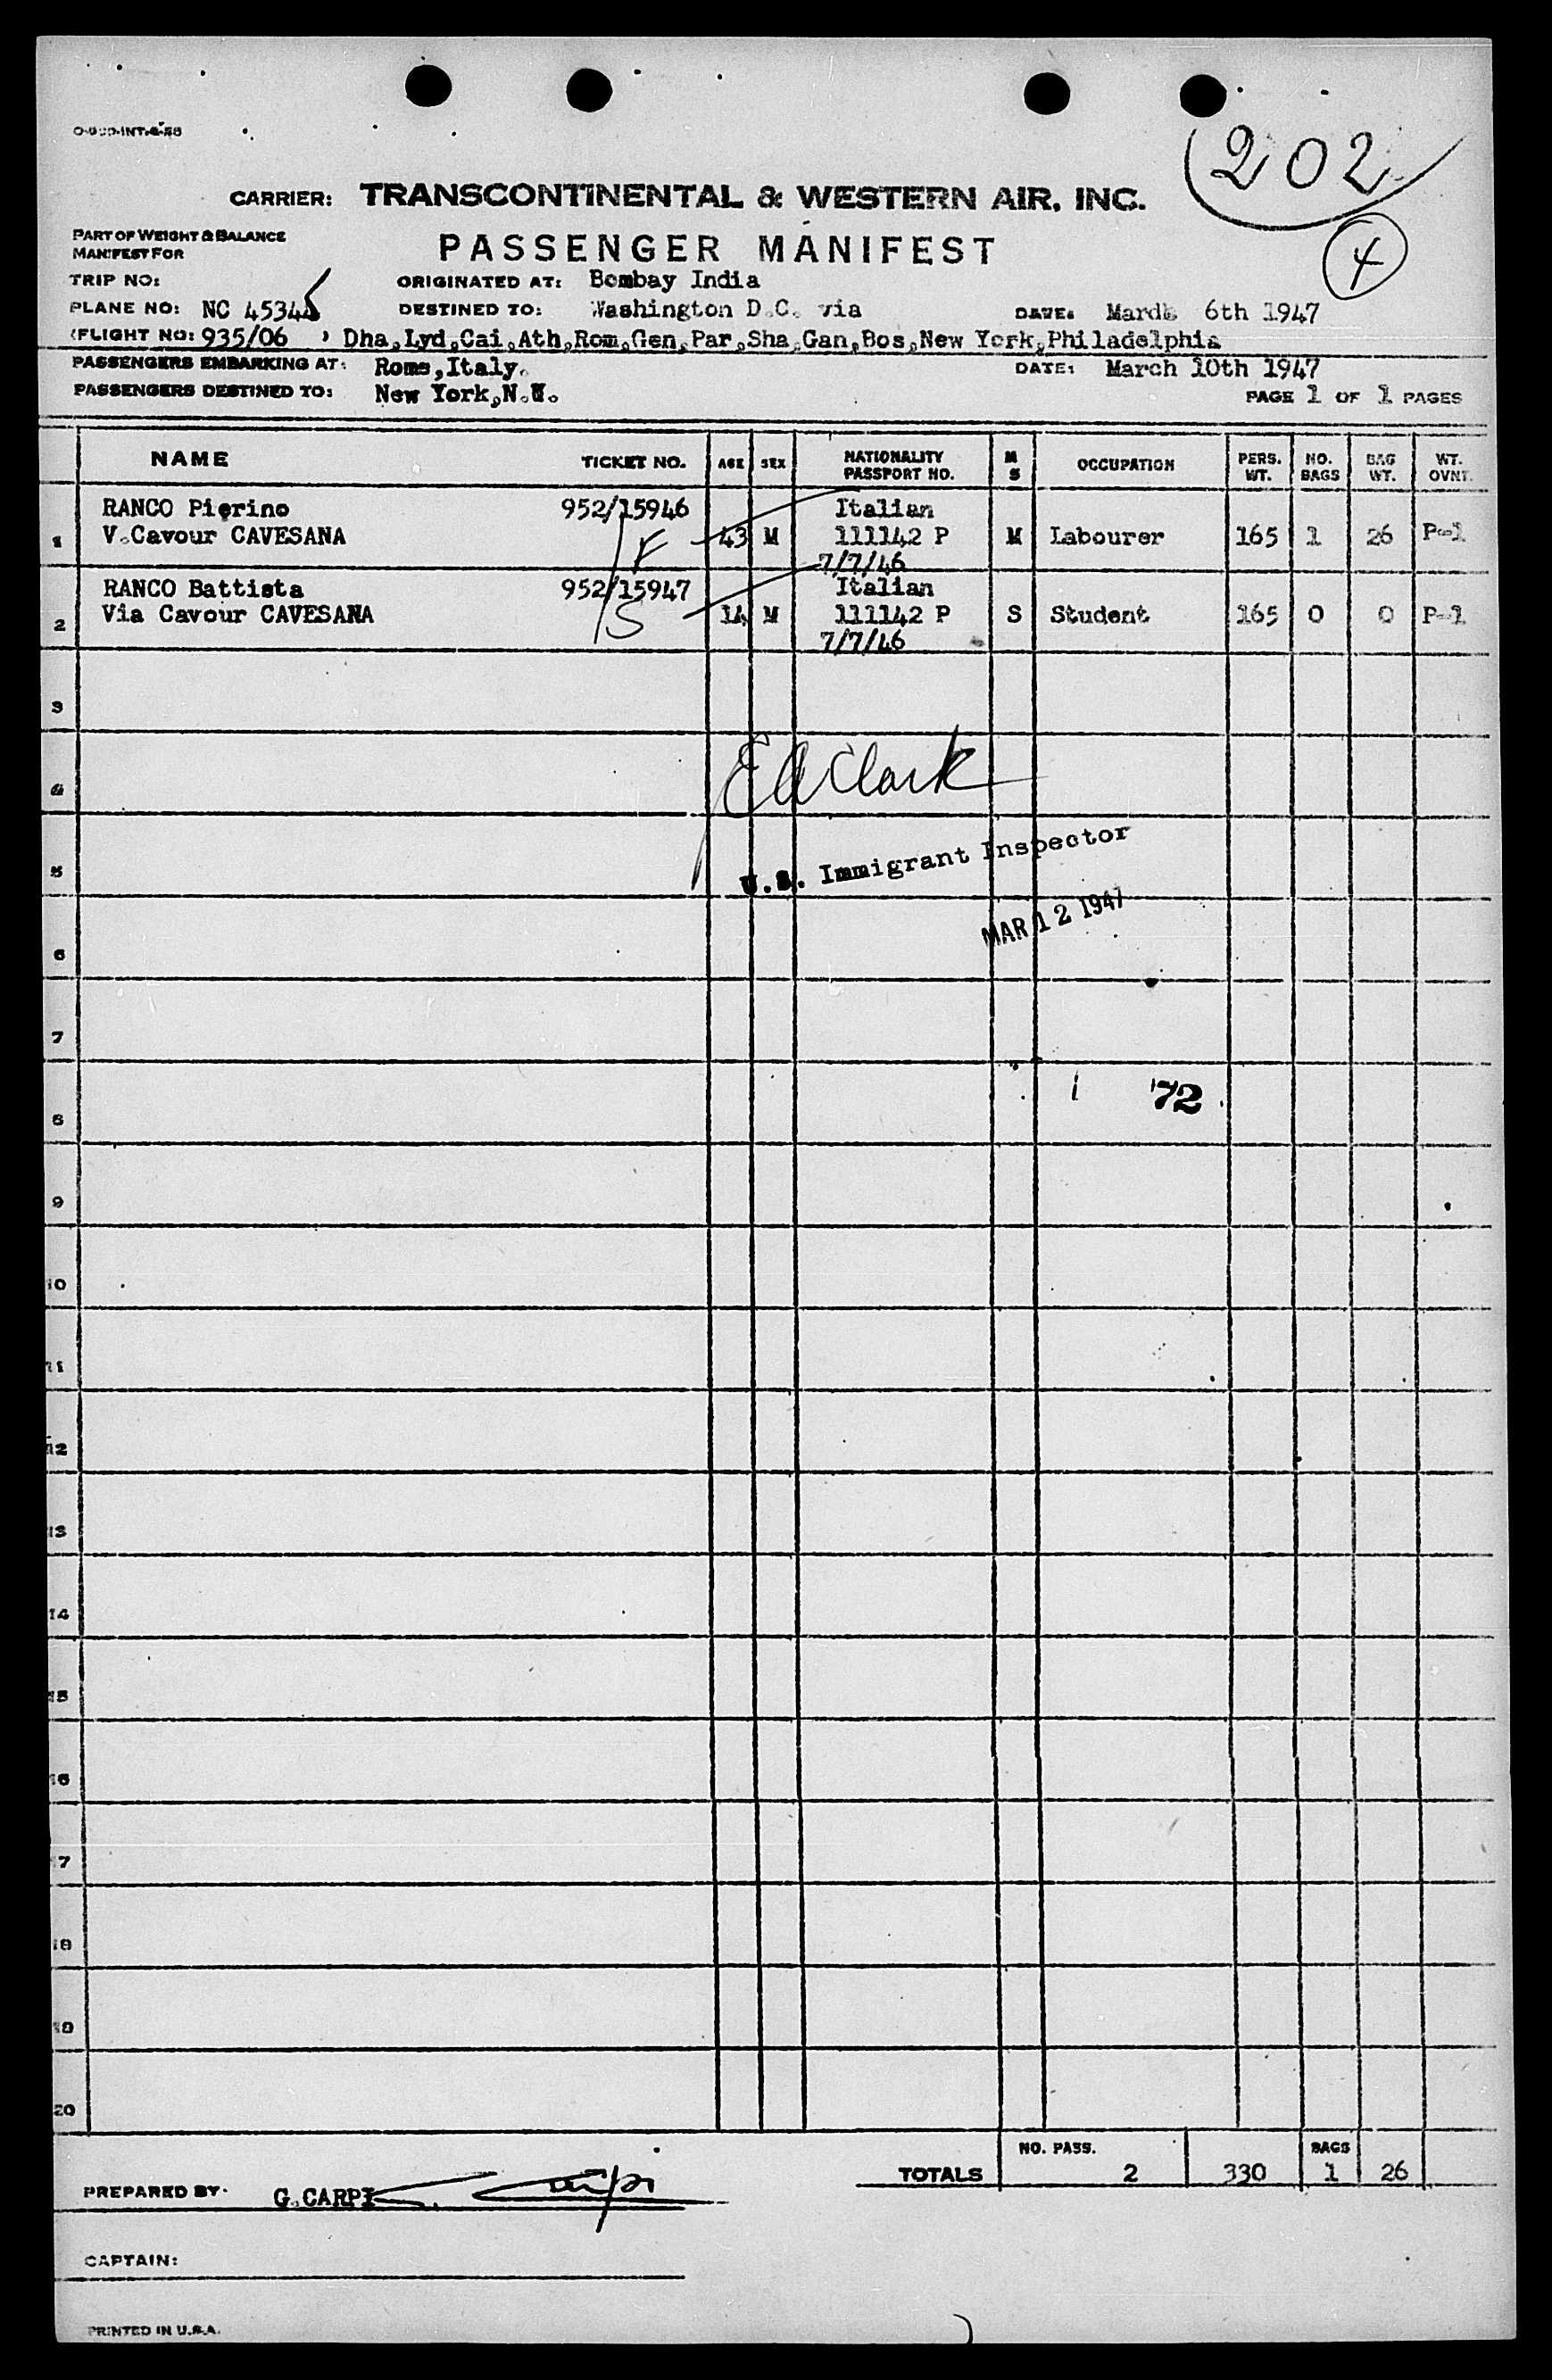 202
CARRIER: TRANSCONTINENTAL & WESTERN AIR, INC.
4
PART OF WEIGHT & BALANCE
MANIFEST FOR
PASSENGER MANIFEST
TRIP NO: ORIGINATED AT: Bombay India
PLANE NO: NC 45345 DESTINED TO: Washington D.C. via DATE: March 6th 1947
(FLIGHT NO: 935/06 ) Dha,Lyd,Cai,Ath,Rom,Gen,Par,Sha,Gan,Bos,New York,Philadelphia
PASSENGERS EMBARKING AT: Rome,Italy. DATE: March 10th 1947
PASSENGERS DESTINED TO: New York,N.Y. PAGE 1 OF 1 PAGES
NAME TICKET NO. AGE SEX NATIONALITY PASSPORT NO. M S OCCUPATION PERS. WT. NO. BAGS BAG WT. WT. OVNT.
RANCO Pierino 952/15946 Italian
1 V.Cavour CAVESANA 43 M 111142 P M Labourer 165 1 26 P-1
7/7/46
RANCO Battista 952/15947 Italian
2 Via Cavour CAVESANA 14 M 111142 P S Student 165 0 0 P-1
S 7/7/46
3
4
E A Clark
5
U.S. Immigrant Inspector
MAR 12 1947
6
7
8
72
9
10
11
12
13
14
15
16
17
18
19
20
NO. PASS. BAGS
TOTALS 2 330 1 26
PREPARED BY. G.CARPI G. Carpi
CAPTAIN:
PRINTED IN U.S.A.